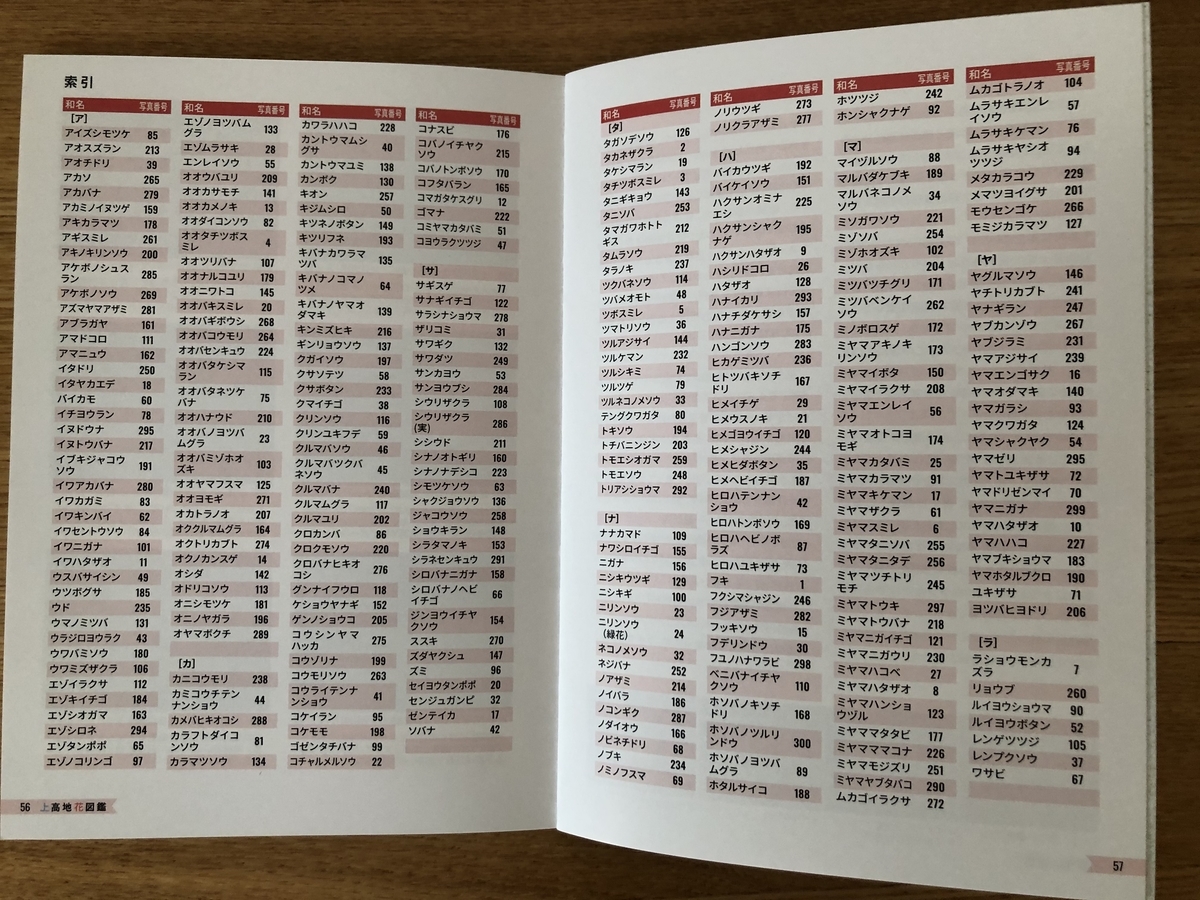 索引
和名 写真番号
[ア]
アイズシモツケ 85
アオスズラン 213
アオチドリ 39
アカソ 265
アカバナ 279
アカミノイヌツゲ 159
アキカラマツ 178
アギスミレ 261
アキノキリンソウ 200
アケボノシュス
ラン 285
アケボノソウ 269
アズマヤマアザミ 281
アブラガヤ 161
アマドコロ 111
アマニュウ 162
イタドリ 250
イタヤカエデ 18
バイカモ 60
イチヨウラン 78
イヌドウナ 295
イヌトウバナ 217
イブキジャコウ
ソウ 191
イワアカバナ 280
イワカガミ 83
イワキンバイ 62
イワセントウソウ 84
イワニガナ 101
イワハタザオ 11
ウスバサイシン 49
ウツボグサ 185
ウド 235
ウマノミツバ 131
ウラジロヨウラク 43
ウワバミソウ 180
ウワミズザクラ 106
エゾイラクサ 112
エゾキイチゴ 184
エゾシオガマ 163
エゾシロネ 294
エゾタンポポ 65
エゾノコリンゴ 97
和名 写真番号
エゾノヨツバム
グラ 133
エゾムラサキ 28
エンレイソウ 55
オオウバユリ 209
オオカサモチ 141
オオカメノキ 13
オオダイコンソウ 82
オオタチツボス
ミレ 4
オオツリバナ 107
オオナルコユリ 179
オオニワトコ 145
オオバキスミレ 20
オオバギボウシ 268
オオバコウモリ 264
オオバセンキュウ 224
オオバタケシマ
ラン 115
オオバタネツケ
バナ 75
オオハナウド 210
オオバノヨツバ
ムグラ 23
オオバミゾホオ
ズキ 103
オオヤマフスマ 125
オオヨモギ 271
オカトラノオ 207
オククルマムグラ 164
オクトリカブト 274
オクノカンスゲ 14
オシダ 142
オドリコソウ 113
オニシモツケ 181
オニノヤガラ 196
オヤマボクチ 289
[カ]
カニコウモリ 238
カミコウチテン
ナンショウ 44
カメバヒキオコシ 288
カラフトダイコ
ンソウ 81
カラマツソウ 134
和名 写真番号
カワラハハコ 228
カントウマムシ
グサ 40
カントウマユミ 138
カンボク 130
キオン 257
キジムシロ 50
キツネノボタン 149
キツリフネ 193
キバナカワラマ
ツバ 135
キバナノコマノ
ツメ 64
キバナノヤマオ
ダマキ 139
キンミズヒキ 216
ギンリョウソウ 137
クガイソウ 197
クサソテツ 58
クサボタン 233
クマイチゴ 38
クリンソウ 116
クリンユキフデ 59
クルマバソウ 46
クルマバツクバ
ネソウ 45
クルマバナ 240
クルマムグラ 117
クルマユリ 202
クロカンバ 86
クロクモソウ 220
クロバナヒキオ
コシ 276
グンナイフウロ 118
ケショウヤナギ 152
ゲンノショウコ 205
コウシンヤマ
ハッカ 275
コウゾリナ 199
コウモリソウ 263
コウライテンナ
ンショウ 41
コケイラン 95
コケモモ 198
ゴゼンタチバナ 99
コチャルメルソウ 22
和名 写真番号
コナスビ 176
コバノイチヤク
ソウ 215
コバノトンボソウ 170
コフタバラン 165
コマガタケスグリ 12
ゴマナ 222
コミヤマカタバミ 51
コヨウラクツツジ 47
[サ]
サギスゲ 77
サナギイチゴ 122
サラシナショウマ 278
ザリコミ 31
サワギク 132
サワダツ 249
サンカヨウ 53
サンヨウブシ 284
シウリザクラ 108
シウリザクラ
(実) 286
シシウド 211
シナノオトギリ 160
シナノナデシコ 223
シモツケソウ 63
シャクジョウソウ 136
ジャコウソウ 258
ショウキラン 148
シラタマノキ 153
シラネセンキュウ 291
シロバナニガナ 158
シロバナノヘビ
イチゴ 66
ジンヨウイチヤ
クソウ 154
ススキ 270
ズダヤクシュ 147
ズミ 96
セイヨウタンポポ 20
センジュガンピ 32
ゼンテイカ 17
ソバナ 42
56 上高地花図鑑
和名 写真番号
[タ]
タガソデソウ 126
タカネザクラ 2
タケシマラン 19
タチツボスミレ 3
タニギキョウ 143
タニソバ 253
タマガワホトト
ギス 212
タムラソウ 219
タラノキ 237
ツクバネソウ 114
ツバメオモト 48
ツボスミレ 5
ツマトリソウ 36
ツルアジサイ 144
ツルケマン 232
ツルシキミ 74
ツルツゲ 79
ツルネコノメソウ 33
テングクワガタ 80
トキソウ 194
トチバニンジン 203
トモエシオガマ 259
トモエソウ 248
トリアシショウマ 292
[ナ]
ナナカマド 109
ナワシロイチゴ 155
ニガナ 156
ニシキウツギ 129
ニシキギ 100
ニリンソウ 23
ニリンソウ
(緑花) 24
ネコノメソウ 32
ネジバナ 252
ノアザミ 214
ノイバラ 186
ノコンギク 287
ノダイオウ 166
ノビネチドリ 68
ノブキ 234
ノミノフスマ 69
和名 写真番号
ノリウツギ 273
ノリクラアザミ 277
[ハ]
バイカウツギ 192
バイケイソウ 151
ハクサンオミナ
エシ 225
ハクサンシャク
ナゲ 195
ハクサンハタザオ 9
ハシリドコロ 26
ハタザオ 128
ハナイカリ 293
ハナチダケサシ 157
ハナニガナ 175
ハンゴンソウ 283
ヒカゲミツバ 236
ヒトツバキソチ
ドリ 167
ヒメイチゲ 29
ヒメウスノキ 21
ヒメゴヨウイチゴ 120
ヒメシャジン 244
ヒメヒダボタン 35
ヒメヘビイチゴ 187
ヒロハテンナン
ショウ 42
ヒロハトンボソウ 169
ヒロハヘビノボ
ラズ 87
ヒロハユキザサ 73
フキ 1
フクシマシャジン 246
フジアザミ 282
フッキソウ 15
フデリンドウ 30
フユノハナワラビ 298
ベニバナイチヤ
クソウ 110
ホソバノキソチ
ドリ 168
ホソバノツルリ
ンドウ 300
ホソバノヨツバ
ムグラ 89
ホタルサイコ 188
和名 写真番号
ホツツジ 242
ホンシャクナゲ 92
[マ]
マイヅルソウ 88
マルバダケブキ 189
マルバネコノメ
ソウ 34
ミソガワソウ 221
ミゾソバ 254
ミゾホオズキ 102
ミツバ 204
ミツバツチグリ 171
ミツバベンケイ
ソウ 262
ミノボロスゲ 172
ミヤマアキノキ
リンソウ 173
ミヤマイボタ 150
ミヤマイラクサ 208
ミヤマエンレイ
ソウ 56
ミヤマオトコヨ
モギ 174
ミヤマカタバミ 25
ミヤマカラマツ 91
ミヤマキケマン 17
ミヤマザクラ 61
ミヤマスミレ 6
ミヤマタニソバ 255
ミヤマタニタデ 256
ミヤマツチトリ
モチ 245
ミヤマトウキ 297
ミヤマトウバナ 218
ミヤマニガイチゴ 121
ミヤマニガウリ 230
ミヤマハコベ 27
ミヤマハタザオ 8
ミヤマハンショ
ウヅル 123
ミヤママタタビ 177
ミヤマママコナ 226
ミヤマモジズリ 251
ミヤマヤブタバコ 290
ムカゴイラクサ 272
和名 写真番号
ムカゴトラノオ 104
ムラサキエンレ
イソウ 57
ムラサキケマン 76
ムラサキヤシオ
ツツジ 94
メタカラコウ 229
メマツヨイグサ 201
モウセンゴケ 266
モミジカラマツ 127
[ヤ]
ヤグルマソウ 146
ヤチトリカブト 241
ヤナギラン 247
ヤブカンゾウ 267
ヤブジラミ 231
ヤマアジサイ 239
ヤマエンゴサク 16
ヤマオダマキ 140
ヤマガラシ 93
ヤマクワガタ 124
ヤマシャクヤク 54
ヤマゼリ 295
ヤマトユキザサ 72
ヤマドリゼンマイ 70
ヤマニガナ 299
ヤマハタザオ 10
ヤマハハコ 227
ヤマブキショウマ 183
ヤマホタルブクロ 190
ユキザサ 71
ヨツバヒヨドリ 206
[ラ]
ラショウモンカ
ズラ 7
リョウブ 260
ルイヨウショウマ 90
ルイヨウボタン 52
レンゲツツジ 105
レンプクソウ 37
ワサビ 67
57